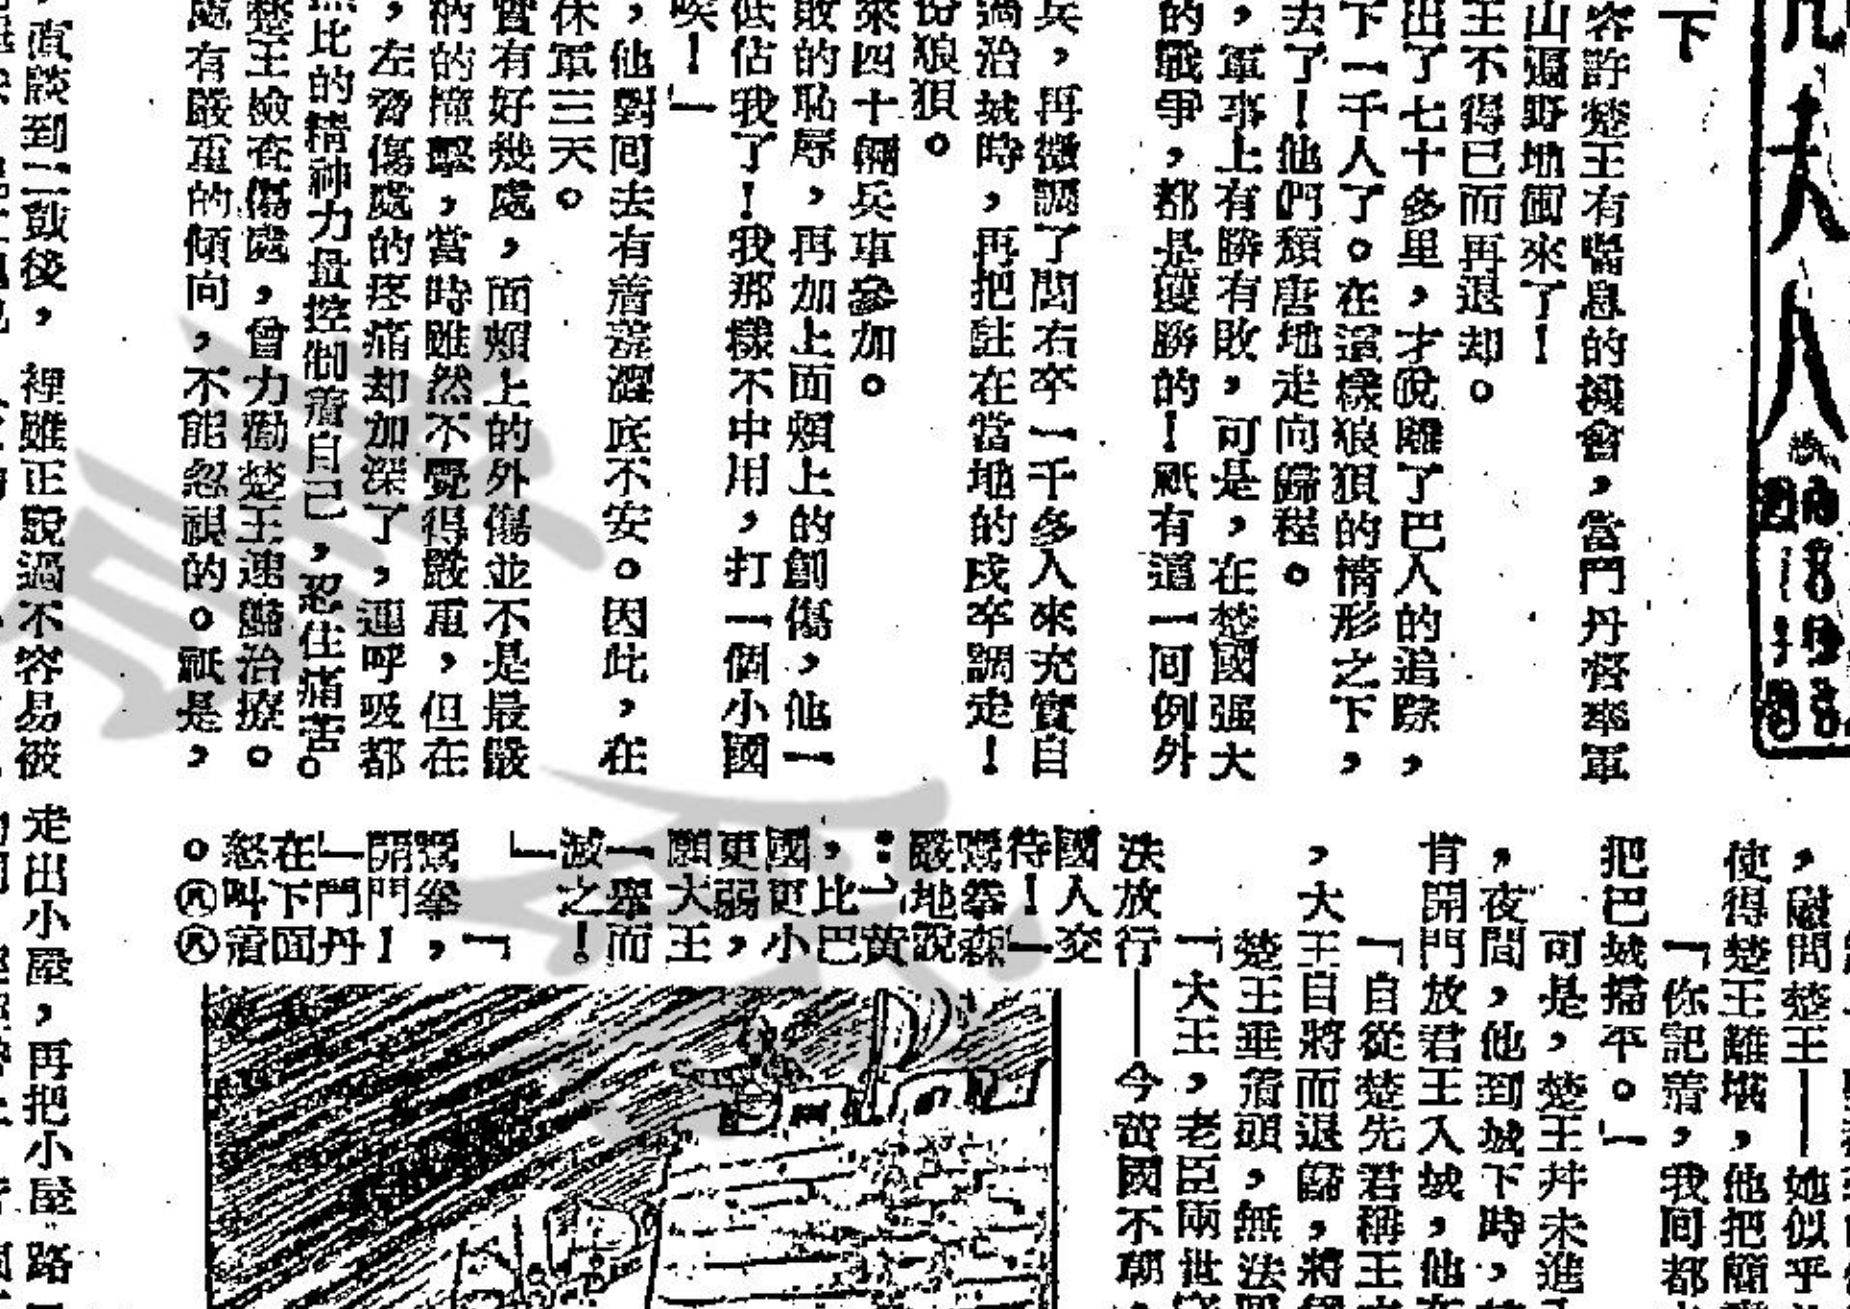 下
容許楚王有喘息的機會，當門丹督率軍
山遍野地衝來了！
王不得已而再退却。
出了七十多里，才脫離了巴人的追踪，
下一千人了。在這樣狼狽的情形之下，
去了！他們頹唐地走向歸程。
，軍事上有勝有敗，可是，在楚國强大
的戰爭，都是獲勝的！祇有這一囘例外
兵，再徵調了閭右卒一千多人來充實自
過治城時，再把駐在當地的戍卒調走！
份狼狽。
來四十輛兵車參加。
敗的恥辱，再加上面頰上的創傷，他一
低估我了！我那樣不中用，打一個小國
唉！」
，他對囘去有着羞澀底不安。因此，在
休軍三天。
實有好幾處，面頰上的外傷並不是最嚴
柄的撞擊，當時雖然不覺得嚴重，但在
，左脅傷處的疼痛却加深了，連呼吸都
無比的精神力量控制着自己，忍住痛苦。
楚王檢查傷處，曾力勸楚王速謀治療。
處有嚴重的傾向，不能忽視的。祇是，
，直談到二鼓後，
裡雖正說過不容易被
，慰問楚王——她似乎
使得楚王難堪，他把簡
「你記着，我囘都
把巴城掃平。」
可是，楚王并未進
，夜間，他到城下時，
肯開門放君王入城，他在
「自從楚先君稱王
，大王自將而退歸，將
楚王垂着頭，無法
「大王，老臣兩世
法放行——今黃國不朝
國人交
待！」
鬻拳森
嚴地說
：「黃
，比巴
國更小
更弱，
願大王
一舉而
滅之！
」
「
鬻拳，
開門！
」門丹
在下面
怒叫着
。㊇㊇
走出小屋，再把小屋
路